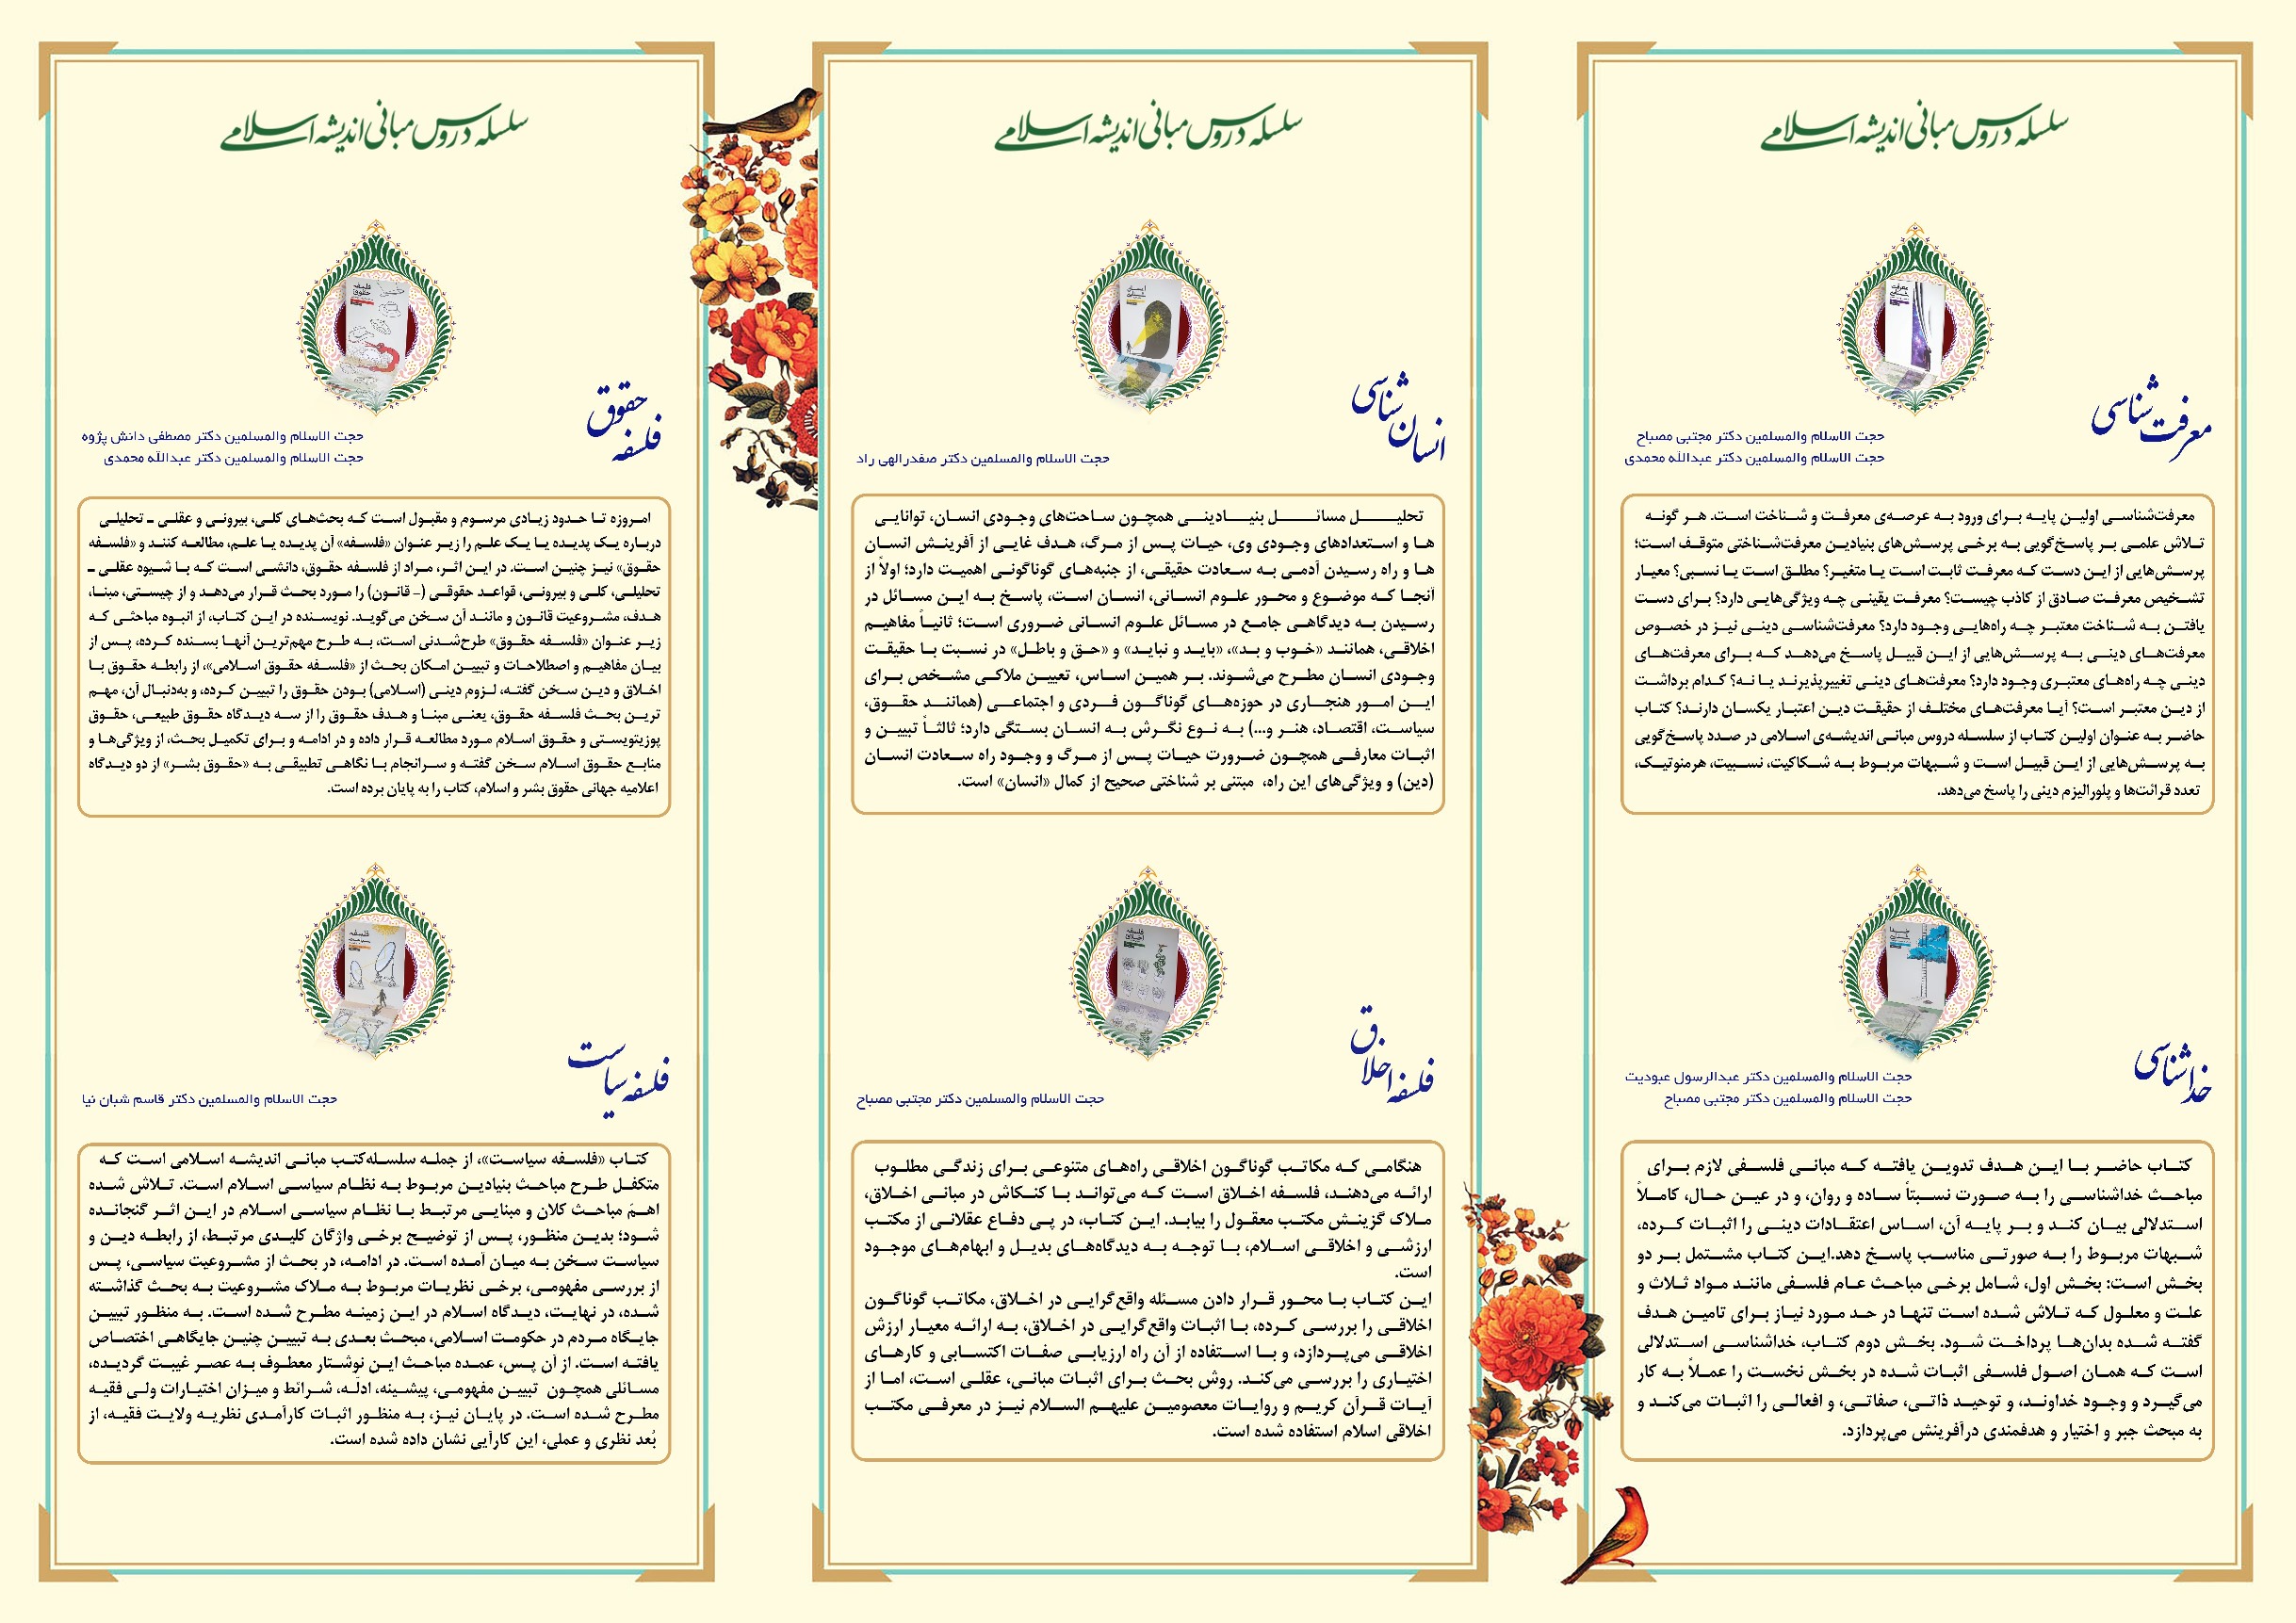 سلسله دروس مبانی اندیشه اسلامی
معرفت
شناسی
معرفت‌شناسی
حجت الاسلام والمسلمین دکتر مجتبی مصباح
حجت الاسلام والمسلمین دکتر عبدالله محمدی
معرفت‌شناسی اولین پایه برای ورود به عرصه‌ی معرفت و شناخت است. هر گونه
تلاش علمی بر پاسخ‌گویی به برخی پرسش‌های بنیادین معرفت‌شناختی متوقف است؛
پرسش‌هایی از این دست که معرفت ثابت است یا متغیر؟ مطلق است یا نسبی؟ معیار
تشخیص معرفت صادق از کاذب چیست؟ معرفت یقینی چه ویژگی‌هایی دارد؟ برای دست
یافتن به شناخت معتبر چه راه‌هایی وجود دارد؟ معرفت‌شناسی دینی نیز در خصوص
معرفت‌های دینی به پرسش‌هایی از این قبیل پاسخ می‌دهد که برای معرفت‌های
دینی چه راه‌های معتبری وجود دارد؟ معرفت‌های دینی تغییرپذیرند یا نه؟ کدام برداشت
از دین معتبر است؟ آیا معرفت‌های مختلف از حقیقت دین اعتبار یکسان دارند؟ کتاب
حاضر به عنوان اولین کتاب از سلسله دروس مبانی اندیشه‌ی اسلامی در صدد پاسخ‌گویی
به پرسش‌هایی از این قبیل است و شبهات مربوط به شکاکیت، نسبیت، هرمنوتیک،
تعدد قرائت‌ها و پلورالیزم دینی را پاسخ می‌دهد.
خدا
شناسی
خداشناسی
حجت الاسلام والمسلمین دکتر عبدالرسول عبودیت
حجت الاسلام والمسلمین دکتر مجتبی مصباح
کتاب حاضر با این هدف تدوین یافته که مبانی فلسفی لازم برای
مباحث خداشناسی را به صورت نسبتاً ساده و روان، و در عین حال، کاملاً
استدلالی بیان کند و بر پایه آن، اساس اعتقادات دینی را اثبات کرده،
شبهات مربوط را به صورتی مناسب پاسخ دهد.این کتاب مشتمل بر دو
بخش است: بخش اول، شامل برخی مباحث عام فلسفی مانند مواد ثلاث و
علت و معلول که تلاش شده است تنها در حد مورد نیاز برای تامین هدف
گفته شده بدان‌ها پرداخت شود. بخش دوم کتاب، خداشناسی استدلالی
است که همان اصول فلسفی اثبات شده در بخش نخست را عملاً به کار
می‌گیرد و وجود خداوند، و توحید ذاتی، صفاتی، و افعالی را اثبات می‌کند و
به مبحث جبر و اختیار و هدفمندی درآفرینش می‌پردازد.
سلسله دروس مبانی اندیشه اسلامی
انسان
شناسی
انسان‌شناسی
حجت الاسلام والمسلمین دکتر صفدرالهی راد
تحلیل مسائل بنیادینی همچون ساحت‌های وجودی انسان، توانایی
ها و استعدادهای وجودی وی، حیات پس از مرگ، هدف غایی از آفرینش انسان
ها و راه رسیدن آدمی به سعادت حقیقی، از جنبه‌های گوناگونی اهمیت دارد؛ اولاً از
آنجا که موضوع و محور علوم انسانی، انسان است، پاسخ به این مسائل در
رسیدن به دیدگاهی جامع در مسائل علوم انسانی ضروری است؛ ثانیاً مفاهیم
اخلاقی، همانند «خوب و بد»، «باید و نباید» و «حق و باطل» در نسبت با حقیقت
وجودی انسان مطرح می‌شوند. بر همین اساس، تعیین ملاکی مشخص برای
این امور هنجاری در حوزه‌های گوناگون فردی و اجتماعی (همانند حقوق،
سیاست، اقتصاد، هنر و...) به نوع نگرش به انسان بستگی دارد؛ ثالثاً تبیین و
اثبات معارفی همچون ضرورت حیات پس از مرگ و وجود راه سعادت انسان
(دین) و ویژگی‌های این راه، مبتنی بر شناختی صحیح از کمال «انسان» است.
فلسفه
اخلاق
فلسفه اخلاق
حجت الاسلام والمسلمین دکتر مجتبی مصباح
هنگامی که مکاتب گوناگون اخلاقی راه‌های متنوعی برای زندگی مطلوب
ارائه می‌دهند، فلسفه اخلاق است که می‌تواند با کنکاش در مبانی اخلاق،
ملاک گزینش مکتب معقول را بیابد. این کتاب، در پی دفاع عقلانی از مکتب
ارزشی و اخلاقی اسلام، با توجه به دیدگاه‌های بدیل و ابهام‌های موجود
است.
این کتاب با محور قرار دادن مسئله واقع‌گرایی در اخلاق، مکاتب گوناگون
اخلاقی را بررسی کرده، با اثبات واقع‌گرایی در اخلاق، به ارائه معیار ارزش
اخلاقی می‌پردازد، و با استفاده از آن راه ارزیابی صفات اکتسابی و کارهای
اختیاری را بررسی می‌کند. روش بحث برای اثبات مبانی، عقلی است، اما از
آیات قرآن کریم و روایات معصومین علیهم السلام نیز در معرفی مکتب
اخلاقی اسلام استفاده شده است.
سلسله دروس مبانی اندیشه اسلامی
فلسفه
حقوق
فلسفه حقوق
حجت الاسلام والمسلمین دکتر مصطفی دانش پژوه
حجت الاسلام والمسلمین دکتر عبدالله محمدی
امروزه تا حدود زیادی مرسوم و مقبول است که بحث‌های کلی، بیرونی و عقلی ـ تحلیلی
درباره یک پدیده یا یک علم را زیر عنوان «فلسفه» آن پدیده یا علم، مطالعه کنند و «فلسفه
حقوق» نیز چنین است. در این اثر، مراد از فلسفه حقوق، دانشی است که با شیوه عقلی ـ
تحلیلی، کلی و بیرونی، قواعد حقوقی (- قانون) را مورد بحث قرار می‌دهد و از چیستی، مبنا،
هدف، مشروعیت قانون و مانند آن سخن می‌گوید. نویسنده در این کتاب، از انبوه مباحثی که
زیر عنوان «فلسفه حقوق» طرح‌شدنی است، به طرح مهم‌ترین آنها بسنده کرده، پس از
بیان مفاهیم و اصطلاحات و تبیین امکان بحث از «فلسفه حقوق اسلامی»، از رابطه حقوق با
اخلاق و دین سخن گفته، لزوم دینی (اسلامی) بودن حقوق را تبیین کرده، و به‌دنبال آن، مهم
ترین بحث فلسفه حقوق، یعنی مبنا و هدف حقوق را از سه دیدگاه حقوق طبیعی، حقوق
پوزیتویستی و حقوق اسلام مورد مطالعه قرار داده و در ادامه و برای تکمیل بحث، از ویژگی‌ها و
منابع حقوق اسلام سخن گفته و سرانجام با نگاهی تطبیقی به «حقوق بشر» از دو دیدگاه
اعلامیه جهانی حقوق بشر و اسلام، کتاب را به پایان برده است.
فلسفه
فلسفه سیاست
حجت الاسلام والمسلمین دکتر قاسم شبان نیا
کتاب «فلسفه سیاست»، از جمله سلسله‌کتب مبانی اندیشه اسلامی است که
متکفل طرح مباحث بنیادین مربوط به نظام سیاسی اسلام است. تلاش شده
اهمّ مباحث کلان و مبنایی مرتبط با نظام سیاسی اسلام در این اثر گنجانده
شود؛ بدین منظور، پس از توضیح برخی واژگان کلیدی مرتبط، از رابطه دین و
سیاست سخن به میان آمده است. در ادامه، در بحث از مشروعیت سیاسی، پس
از بررسی مفهومی، برخی نظریات مربوط به ملاک مشروعیت به بحث گذاشته
شده، در نهایت، دیدگاه اسلام در این زمینه مطرح شده است. به منظور تبیین
جایگاه مردم در حکومت اسلامی، مبحث بعدی به تبیین چنین جایگاهی اختصاص
یافته است. از آن پس، عمده مباحث این نوشتار معطوف به عصر غیبت گردیده،
مسائلی همچون تبیین مفهومی، پیشینه، ادلّه، شرائط و میزان اختیارات ولی فقیه
مطرح شده است. در پایان نیز، به منظور اثبات کارآمدی نظریه ولایت فقیه، از
بُعد نظری و عملی، این کارآیی نشان داده شده است.